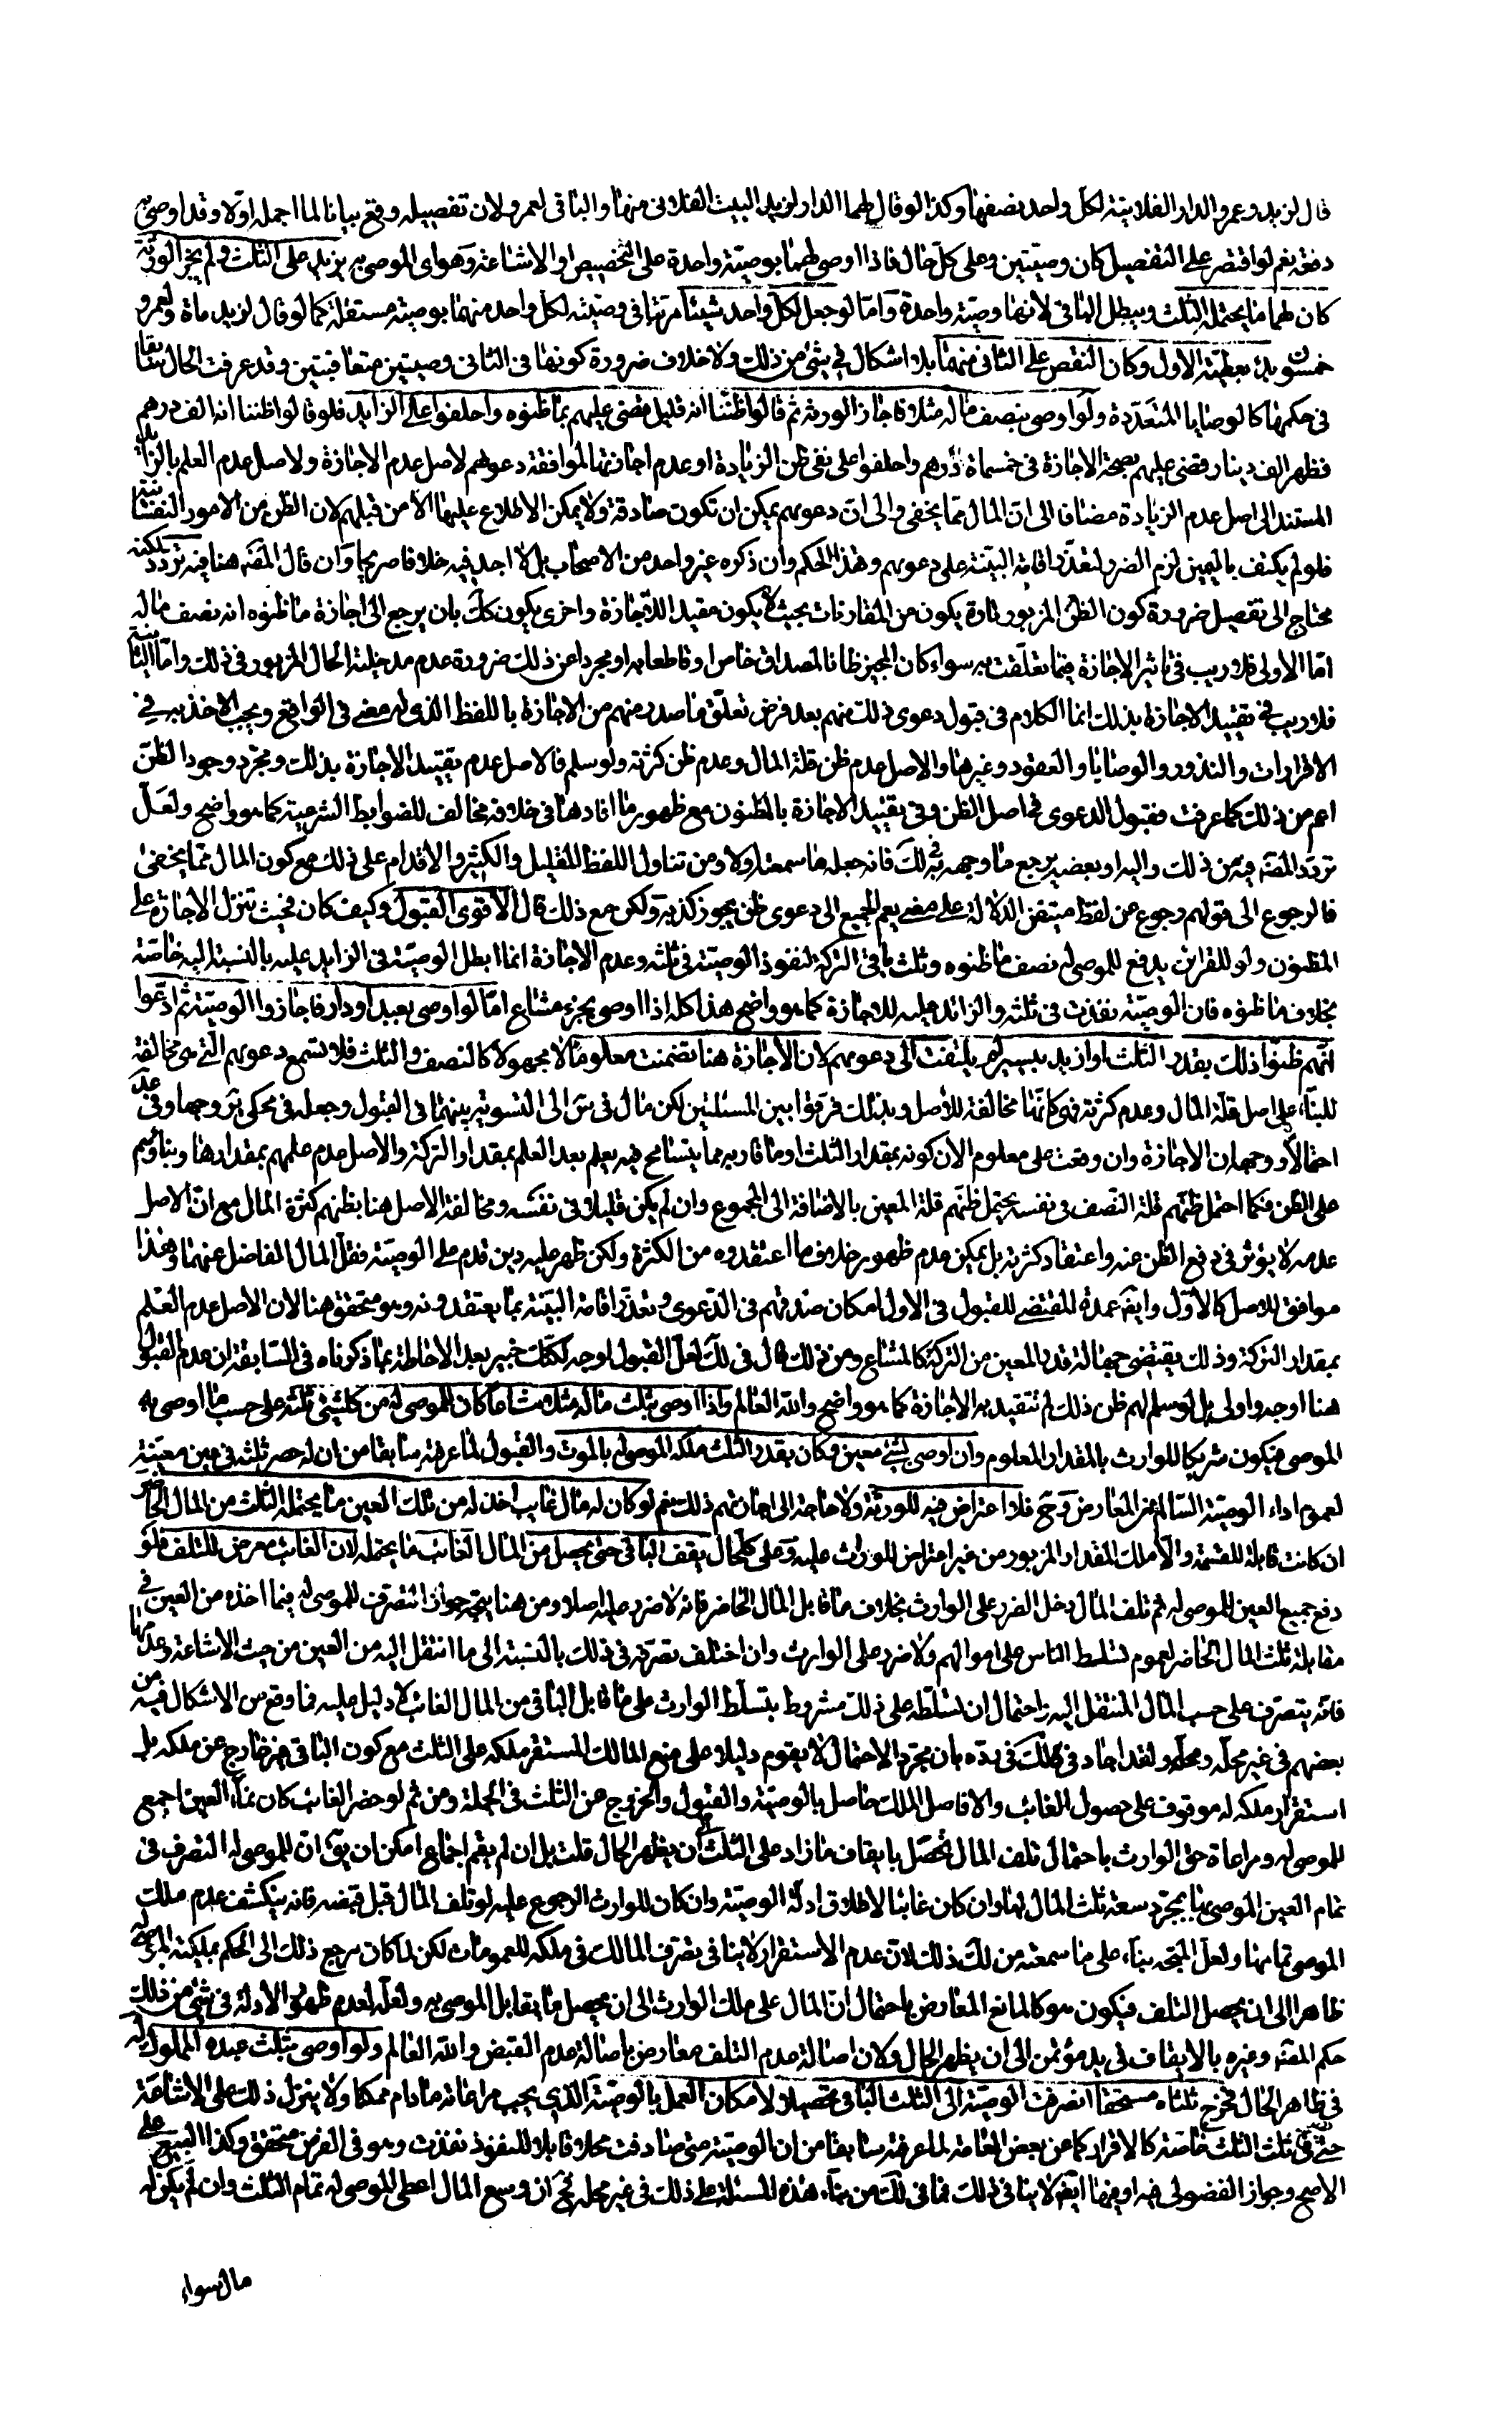 قال لزيد وعمرو الدار الفلانية لكل واحد نصفها وكذا لو قال لهما الدار لزيد البيت الفلانى منها والباقى لعمرو لان تفصيله وقع بيانا لما اجمله اولا وقد اوصى به
دفعة نعم لو اقتصر على التفصيل كان وصيتين وعلى كل حال فاذا اوصى لهما بوصية واحدة على التخصيص او الاشاعة وهو اى الموصى به يزيد على الثلث ولم يجز الورثة
كان لهما ما يحتمله الثلث ويبطل الباقى لانها وصية واحدة واما لو جعل لكل واحد شيئا مرتبا فى وصيته لكل واحد منهما بوصية مستقلة كما لو قال لزيد ماة ولعمرو
خمسون بدئ بعطية الاول وكان النقص على الثانى منهما بلا اشكال فى شئ من ذلك ولا خلاف ضرورة كونها فى الثانى وصيتين متعاقبتين وقد عرفت الحال سابقا
فى حكمها كالوصايا المتعددة ولو اوصى بنصف ماله مثلا فاجاز الورثة ثم قالوا ظننا انه قليل قضى عليهم بما ظنوه واحلفوا على الزايد فلو قالوا ظننا انه الف درهم
فظهر الف دينار قضى عليهم بصحة الاجازة فى خمسماة درهم واحلفوا على نفى ظن الزيادة او عدم اجازتها لموافقة دعوهم لاصل عدم الاجازة ولاصل عدم العلم بالزايد
المستند الى اصل عدم الزيادة مضافا الى ان المال مما يخفى والى ان دعوهم يمكن ان تكون صادقة ولا يمكن الاطلاع عليها الا من قبلهم لان الظن من الامور النفسانية
فلو لم يكتف باليمين لزم الضرر لتعذر اقامة البينة على دعوهم وهذا الحكم وان ذكره غير واحد من الاصحاب بل لا اجد فيه خلافا صريحا وان قال المصنف هنا فيه تردد لكنه
محتاج الى تفصيل ضرورة كون الظن المزبور تارة يكون من المقارنات بحيث لا يكون مقيدا للاجازة واخرى يكون كك بان يرجع الى اجازة ما ظنوه انه نصف ماله
اما الاولى فلا ريب فى تاثير الاجازة فيما تعلقت به سواء كان المجيز ظانا لمصداق خاص او قاطعا به او مجردا عن ذلك ضرورة عدم مدخلية الحال المزبور فى ذلك واما الثانية
فلا ريب فى تقييد الاجازة بذلك انما الكلام فى قبول دعوى ذلك منهم بعد فرض تعلق ما صدر منهم من الاجازة باللفظ الذى له معنى فى الواقع ويجب الاخذ به فى
الاقرارات والنذور والوصايا والعقود وغيرها والاصل عدم ظن قلة المال وعدم ظن كثرته ولو سلم فالاصل عدم تقييد الاجازة بذلك ومجرد وجود الظن
اعم من ذلك كما عرفت فقبول الدعوى فى اصل الظن وفى تقييد الاجازة بالمظنون مع ظهور ما افادها فى خلافه مخالف للضوابط الشرعية كما هو واضح ولعل
تردد المصنف فيه من ذلك واليه او بعضه يرجع ما وجهه به فى لك فانه جعله ما سمعته اولا ومن تناول اللفظ للقليل والكثير والاقدام على ذلك مع كون المال مما يخفى
فالرجوع الى قولهم رجوع عن لفظ متيقن الدلالة على معنى يعم الجميع الى دعوى ظن يجوز كذبه ولكن مع ذلك قال الاقوى القبول وكيف كان فحيث تنزل الاجازة على
المظنون ولو للقراين يدفع للموصى له نصف ما ظنوه وثلث باقى التركة لنفوذ الوصية فى ثلثه وعدم الاجازة انما ابطل الوصية فى الزايد عليه بالنسبة اليه خاصة
بخلاف ما ظنوه فان الوصية نفذت فى ثلثه والزائد عليه للاجازة كما هو واضح هذا كله اذا اوصى بجزء مشاع اما لو اوصى بعبد او دار فاجازوا الوصية ثم ادعوا
انهم ظنوا ذلك بقدر الثلث او ازيد بيسير لم يلتفت الى دعوهم لان الاجازة هنا تضمنت معلوما لا مجهولا كالنصف والثلث فلا تسمع دعوهم التى هى مخالفة
للبناء على اصل قلة المال وعدم كثرته فهى كانها مخالفة للاصل وبذلك فرقوا بين المسئلتين لكن مال فى س الى التسوية بينهما فى القبول وجعله فى محكى ير وجها وفى عد
احتمالا ووجهه ان الاجازة وان وقعت على معلوم الا ان كونه بمقدار الثلث او ما قاربه مما يتسامح فيه يعلم بعد العلم بمقدار التركة والاصل عدم علمهم بمقدارها وبناؤهم
على الظن فكما احتمل ظنهم قلة النصف فى نفسه يحتمل ظنهم قلة المعين بالاضافة الى المجموع وان لم يكن قليلا فى نفسه ومخالفة الاصل هنا بظنهم كثرة المال مع ان الاصل
عدمه لا يؤثر فى دفع الظن عنه واعتقاد كثرته بل يمكن عدم ظهور خلاف ما اعتقدوه من الكثرة ولكن ظهر عليه دين قدم على الوصية فقل المال الفاضل عنهما وهذا
موافق للاصل كالاول وايضا عمدة المقتضى للقبول فى الاول امكان صدقهم فى الدعوى وتعذر اقامة البينة بما يعتقدونه وهو متحقق هنا لان الاصل عدم العلم
بمقدار التركة وذلك يقتضى جهالة قدر المعين من التركة كالمشاع ومن ذلك قال فى لك لعل القبول اوجه لكنك خبير بعد الاحاطة بما ذكرناه فى السابقة ان عدم القبول
هنا اوجه واولى بل لو سلم لهم ظن ذلك لم تتقيد به الاجازة كما هو واضح والله العالم واذا اوصى بثلث ماله مثلا مشاعا كان للموصى له من كل شئ ثلثه على حسب ما اوصى به
الموصى فيكون شريكا للوارث بالمقدار المعلوم وان اوصى بشئ معين وكان بقدر الثلث ملكه الموصى له بالموت والقبول لما عرفته سابقا من ان له حصر ثلثه فى عين معينة
لعموم اداء الوصية السالم عن المعارض وح فلا اعتراض فيه للورثة ولا حاجة الى اجازتهم ذلك نعم لو كان له مال غايب اخذ له من تلك العين ما يحتمله الثلث من المال الحاضر
ان كانت قابلة للقسمة والا ملك المقدار المزبور من غير اعتراض للوارث عليه وعلى كل حال يقف الباقى حتى يحصل من المال الغائب ما يحتمله لان الغائب معرض للتلف فلو
دفع جميع العين للموصى له ثم تلف المال دخل الضرر على الوارث بخلاف ما قابل المال الحاضر فانه لا ضرر عليه اصلا ومن هنا يتجه جواز التصرف للموصى له فيما اخذه من العين فى
مقابلة ثلث المال الحاضر لعموم تسلط الناس على اموالهم ولا ضرر على الوارث وان اختلف تصرفه فى ذلك بالنسبة الى ما انتقل اليه من العين من حيث الاشاعة وعدمها
فانه يتصرف على حسب المال المنتقل اليه واحتمال ان تسلطه على ذلك مشروط بتسلط الوارث على ما قابل الباقى من المال الغائب لا دليل عليه فما وقع من الاشكال فيه من
بعضهم فى غير محله ومحله ولقد اجاد فى لك فى رده بان مجرد الاحتمال لا يقوم دليلا على منع المالك المستقر ملكه على الثلث مع كون الباقى غير خارج عن ملكه بل
استقرار ملكه له موقوف على حصول الغائب والا فاصل الملك حاصل بالوصية والقبول والخروج من الثلث فى الجملة ومن ثم لو حضر الغائب كان نماء العين اجمع
للموصى له ومراعاة حق الوارث باحتمال تلف المال تحصل بايقاف ما زاد على الثلث الى ان يظهر الحال قلت بل ان لم يقم اجماع امكن ان يق ان للموصى له التصرف فى
تمام العين الموصى بها بمجرد سعة ثلث المال لها وان كان غائبا لاطلاق ادلة الوصية وان كان للوارث الرجوع عليه لو تلف المال قبل قبضه فانه ينكشف عدم ملك
الموصى تمامها ولعل المتجه بناء على ما سمعته من لك ذلك لان عدم الاستقرار لا ينافى تصرف المالك فى ملكه للعمومات لكن لما كان مرجع ذلك الى الحكم بملكية الموصى له
ظاهرا الى ان يحصل التلف فيكون هو كالمانع المعارض باحتمال ان المال على ملك الوارث الى ان يحصل ما يقابل الموصى به ولعله لعدم ظهور الادلة فى شئ من ذلك
حكم المصنف وغيره بالايقاف فى يد مؤتمن الى ان يظهر الحال ولان اصالة عدم التلف معارض باصالة عدم القبض والله العالم ولو اوصى بثلث عبده المملوك له
فى ظاهر الحال فخرج ثلثاه مستحقا انصرفت الوصية الى الثلث الباقى تحصيلا لامكان العمل بالوصية الذى يجب مراعاته ما دام ممكنا ولا ينزل ذلك على الاشاعة
حتى فى ثلث الثلث خاصة كالاقرار كما عن بعض العامة لما عرفته سابقا من ان الوصية متى صادفت محلا قابلا للنفوذ نفذت وهو فى الفرض متحقق وكذا البيع على
الاصح وجواز الفضولى فيه او فيها ايضا لا ينافى ذلك فما فى لك من بناء هذه المسئلة على ذلك فى غير محله نعم ان وسع المال اعطى للموصى له تمام الثلث وان لم يكن له
مال سواء